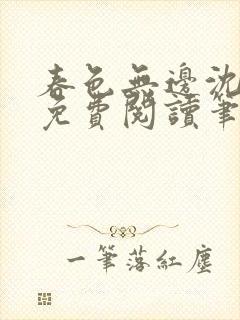 春色無邊沈
免費閱讀筆
一筆落紅塵